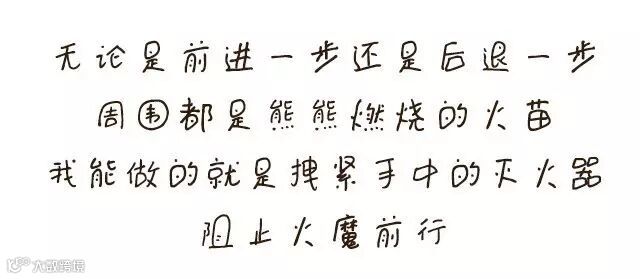 无论是前进一步还是后退一步
周围都是熊熊燃烧的火苗
我能做的就是拽紧手中的灭火器
阻止火魔前行
大数跨境